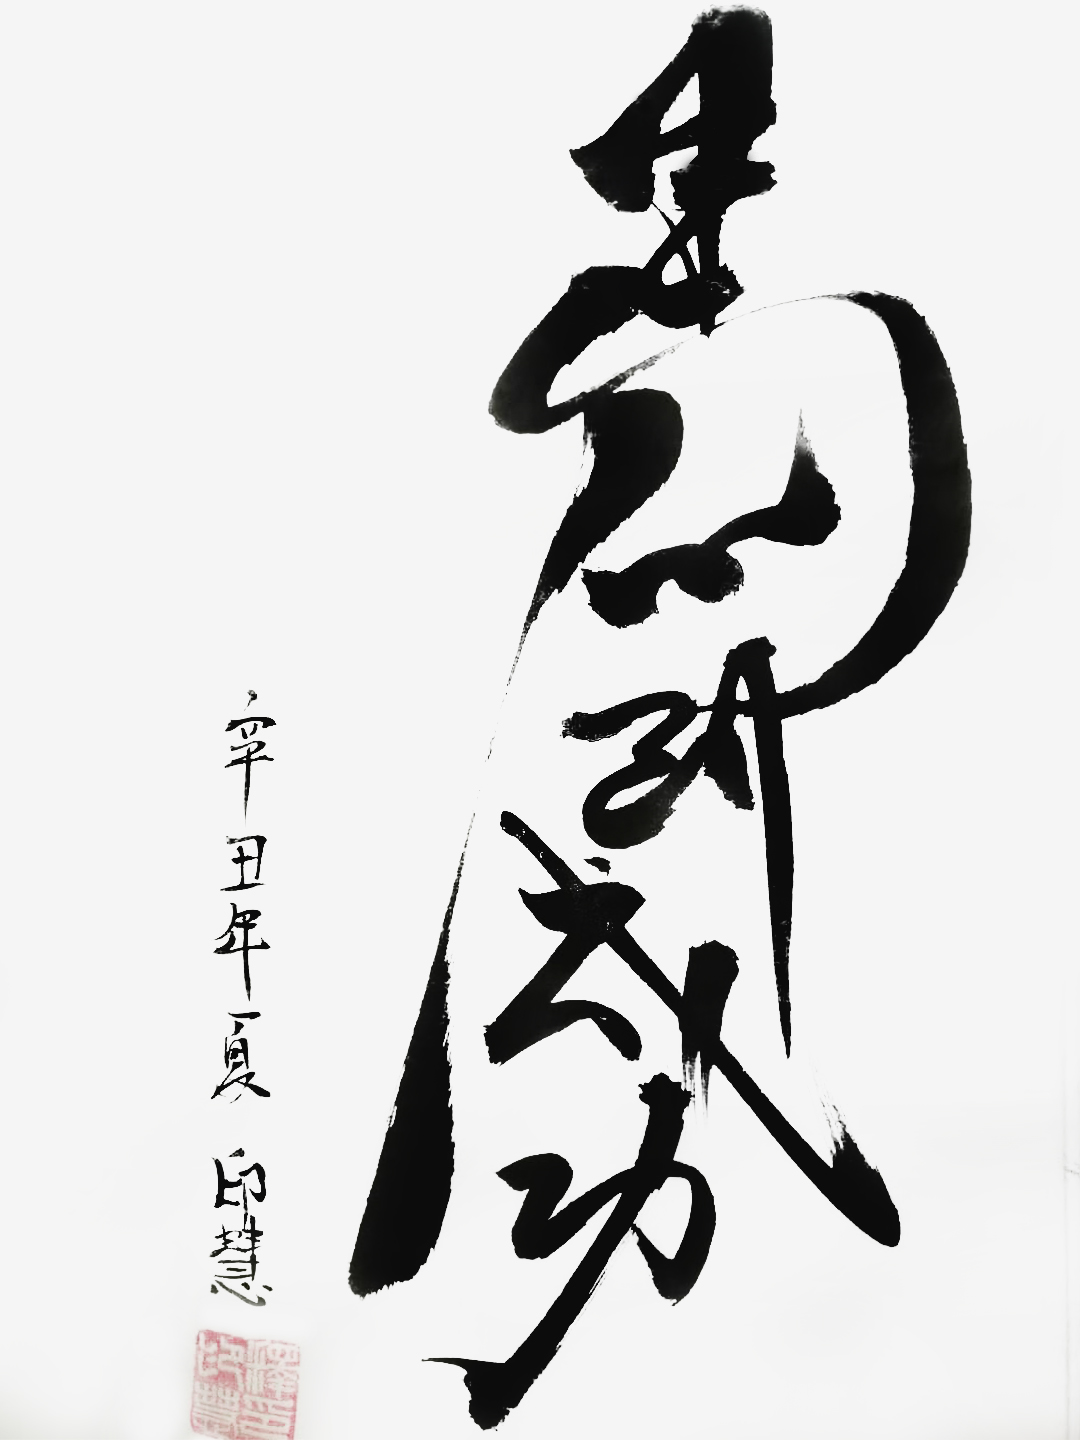 馬到成功
辛丑年夏 印慧